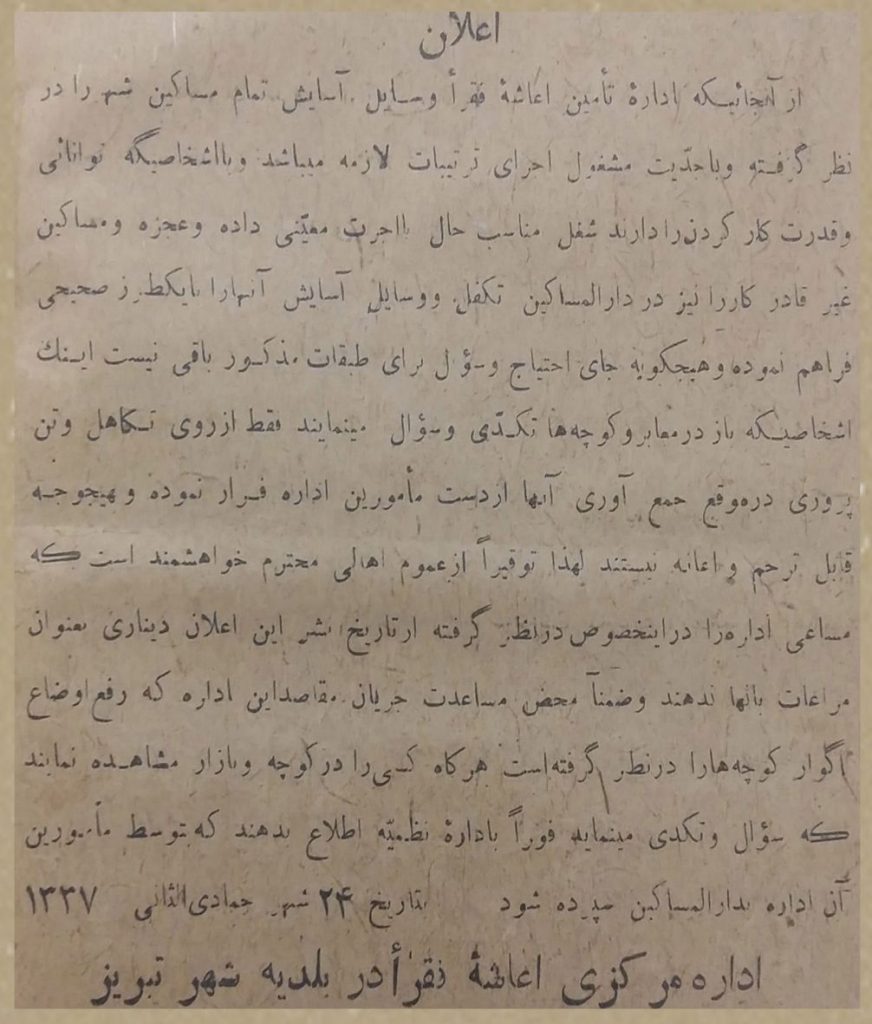 اعلان
از آنجائیکه ادارهٔ تأمین اعاشهٔ فقرأ وسایل آسایش تمام مساکین شهر را در
نظر گرفته وباجدّیت مشغول اجرای ترتیبات لازمه میباشد وبااشخاصیگه توانائی
وقدرت کار کردن‌را دارند شغل مناسب حال بااجرت معیّنی داده وعجزه ومساکین
غیر قادر کاررا نیز در دارالمساکین تکفل ووسایل آسایش آنهارا بایکطرز صحیحی
فراهم نموده وهیجکویه جای احتیاج وسؤال برای طبقات مذکور باقی نیست اینك
اشخاصیکه باز درمعابر وکوچه‌ها تکدّی وسؤال مینمایند فقط ازروی تکاهل وتن
پروری درموقع جمع آوری آنها ازدست مأمورین اداره فرار نموده وبهیجوجه
قابل ترحم واعانه نیستند لهذا توقیراً ازعموم اهالی محترم خواهشمند است که
مساعی اداره‌را دراینخصوص درنظر گرفته ازتاریخ نشر این اعلان دیناری بعنوان
مراعات بانها ندهند وضمناً محض مساعدت جریان مقاصداین اداره که رفع اوضاع
ناگوار کوچه‌هارا درنظر گرفته‌است هرکاه کسی را درکوچه وبازار مشاهده نمایند
که سؤال وتکدی مینماید فوراً بادارهٔ نظمیّه اطلاع بدهند که بتوسط مأمورین
آن اداره بدارالمساکین سپرده شود بتاریخ ۲۴ شهر جمادی‌الثانی ۱۳۳۷
اداره مرکزی اعاشهٔ فقرأ در بلدیه شهر تبریز